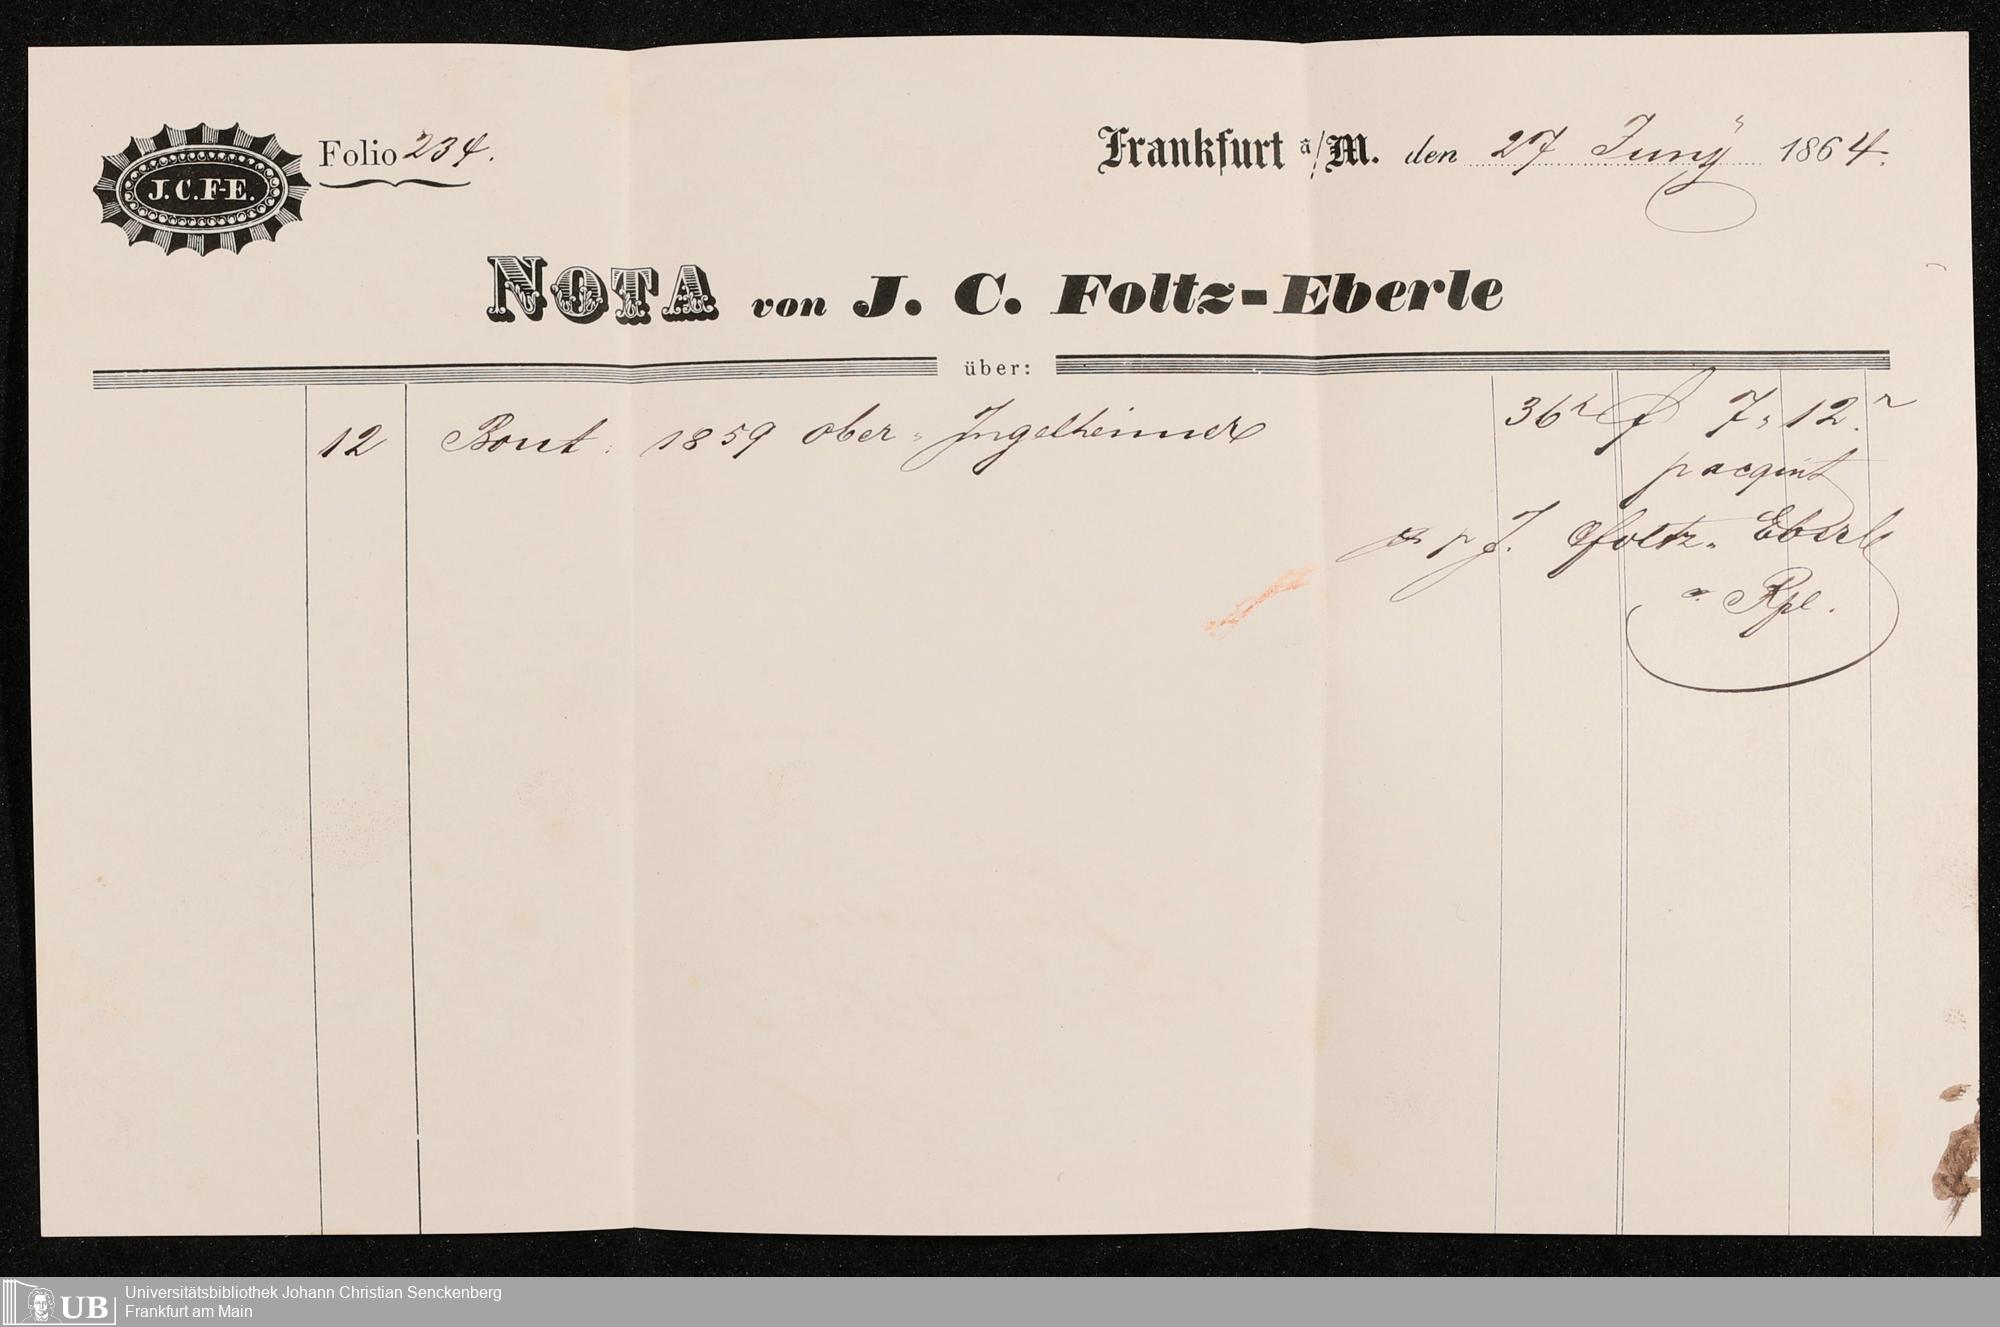 J. C. F-E.
Folio 234.
Frankfurt a/M. den 27 Juny 1864.
NOTA von J. C. Foltz-Eberle
über:
12 Bout: 1859 ober-Ingelheimer 36r f 7,12.r
p acquit
pp J. C. Foltz-Eberle
Universitätsbibliothek Johann Christian Senckenberg
UB Frankfurt am Main